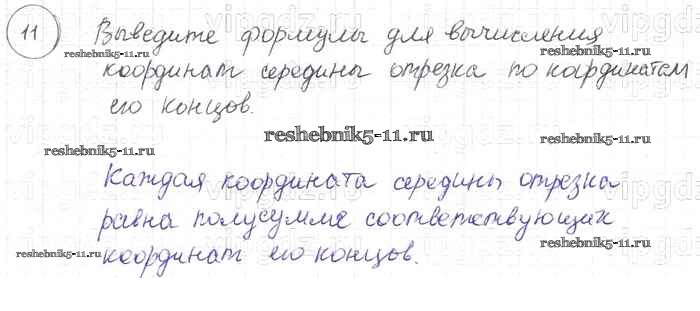 11 Выведите формулы для вычисления
reshebnik5-11.ru reshebnik5-11.ru
координат середины отрезка по координатам
его концов.
reshebnik5-11.ru
reshebnik5-11.ru
Каждая координата середины отрезка
равна полусумме соответствующих
reshebnik5-11.ru reshebnik5-11.ru
координат его концов.